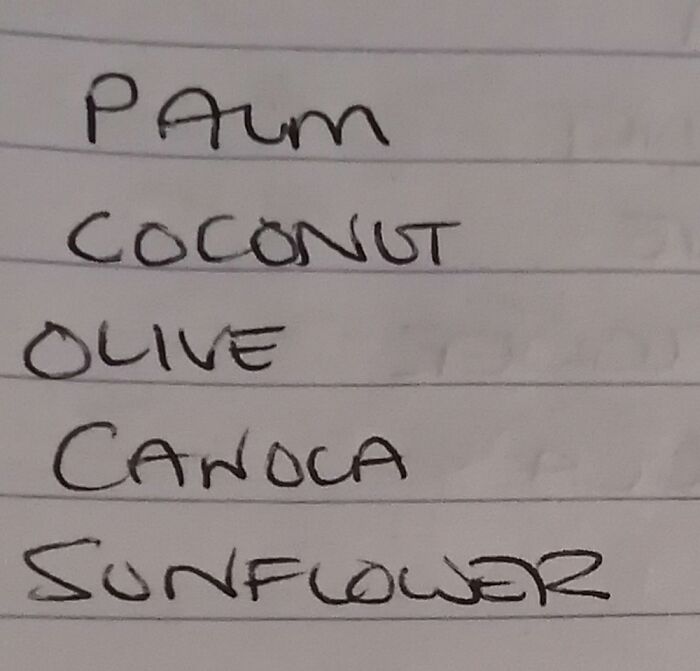 PALM
COCONUT
OLIVE
CANOLA
SUNFLOWER